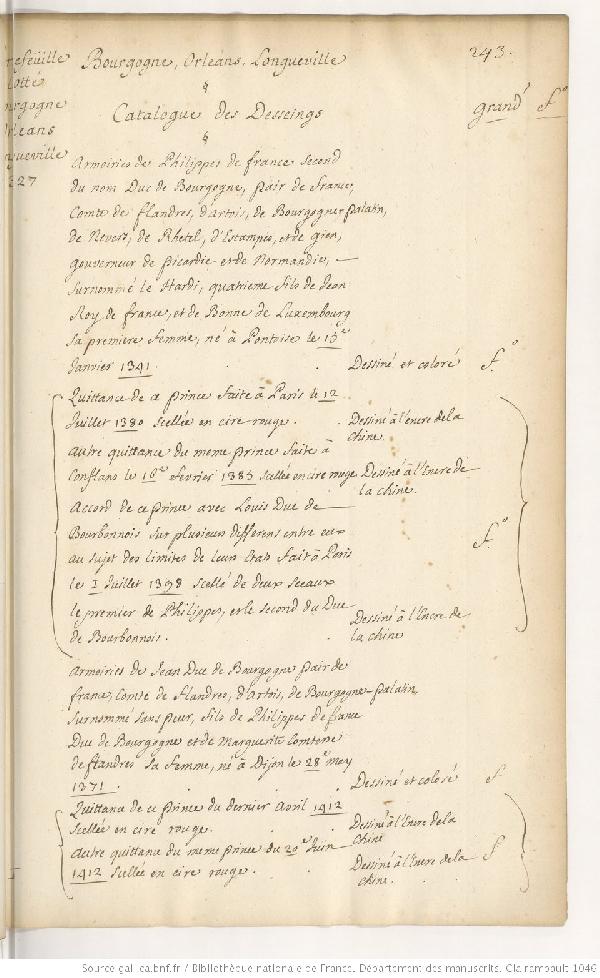 Bourgogne, Orleans, Longueville
243.
Catalogue des Desseings
grand f.º
otté
orleans
327
Armoiries de Philippes de france second
du nom Duc de Bourgogne, pair de france,
Comte de flandres, d'artois, de Bourgogne palatin,
de Nevers, de Rhetel, d'Estampes, et de gien,
gouverneur de picardie et de Normandie,
surnommé le Hardi, quatrieme fils de Jean
Roy de france, et de Bonne de Luxembourg
sa premiere femme, né à Pontoise le 15e
Janvier 1341. Dessiné et coloré f.º
Quittance de ce prince faite à Paris le 12
Juillet 1380 scellée en cire rouge. Dessiné à l'encre de la
chine.
autre quittance du meme prince faite à
Conflans le 16e fevrier 1385 scellée en cire rouge Dessiné à l'Encre de
la chine.
Accord de ce prince avec Louis Duc de
Bourbonnois sur plusieurs differens entre eux
au sujet des limites de leurs Etats fait à Paris f.º
le 1 Juillet 1398 scellé de deux sceaux
le premier de Philippes, et le second du Duc
de Bourbonnois. Dessiné à l'Encre de
la chine
Armoiries de Jean Duc de Bourgogne pair de
france, Comte de flandres, d'Artois, de Bourgogne palatin,
surnommé sans peur, fils de Philippes de france
Duc de Bourgogne et de Marguerite Comtesse
de flandres sa femme, né à Dijon le 28e may
1371. Dessiné et coloré f.
Quittance de ce prince du dernier Avril 1412
scellée en cire rouge. Dessiné à l'Encre de la
chine
Autre quittance du meme prince du 20e Juin f.
1412 scellée en cire rouge. Dessiné à l'Encre de la
chine.
Source gallica.bnf.fr / Bibliothèque nationale de France. Département des manuscrits. Clairambault 1046